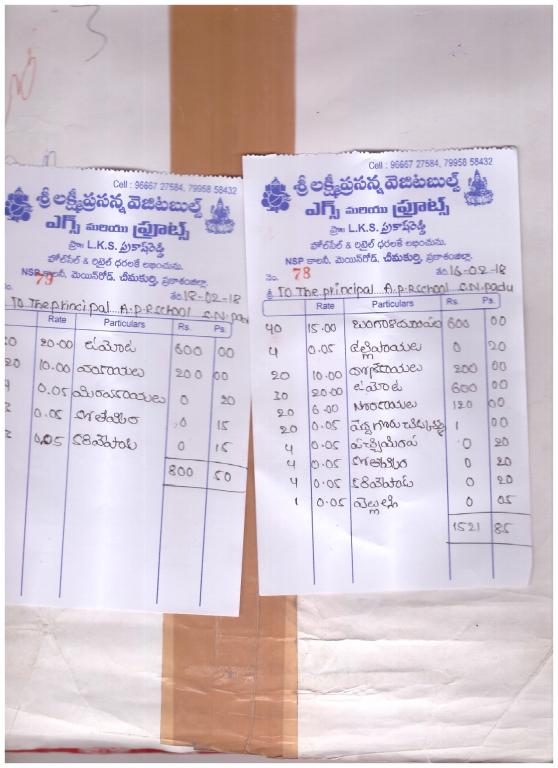 3
Cell : 96667 27584, 79958 58432
శ్రీ లక్ష్మీప్రసన్న వెజిటబుల్స్
ఎగ్స్ మరియు ఫ్రూట్స్
ప్రొః L.K.S. ప్రకాష్‌రెడ్డి
హోల్‌సేల్ & రిటైల్ ధరలకే లభించును.
NSP కాలనీ, మెయిన్‌రోడ్, చీమకుర్తి, ప్రకాశంజిల్లా.
79 తేది 18-02-18
To The principal A.P.R School C.N. padu
Rate Particulars Rs. Ps.
20.00 టమోట 600 00
20 10.00 200 00
0.05 0 20
0.05 0 15
0.05 కరివేపాకు 0 15
800 50
Cell : 96667 27584, 79958 58432
శ్రీ లక్ష్మీప్రసన్న వెజిటబుల్స్
ఎగ్స్ మరియు ఫ్రూట్స్
ప్రొః L.K.S. ప్రకాష్‌రెడ్డి
హోల్‌సేల్ & రిటైల్ ధరలకే లభించును.
NSP కాలనీ, మెయిన్‌రోడ్, చీమకుర్తి, ప్రకాశంజిల్లా.
నెం. 78 తేది 16-02-18
శ్రీ To The principal A.P.R School C.N. padu
Rate Particulars Rs. Ps.
40 15.00 బంగాళదుంప 600 00
4 0.05 0 20
20 10.00 200 00
30 20.00 టమోట 600 00
20 6.00 120 00
20 0.05 1 00
4 0.05 పచ్చిమిరప 0 20
4 0.05 0 20
4 0.05 కరివేపాకు 0 20
1 0.05 వెల్లుల్లి 0 05
1521 85